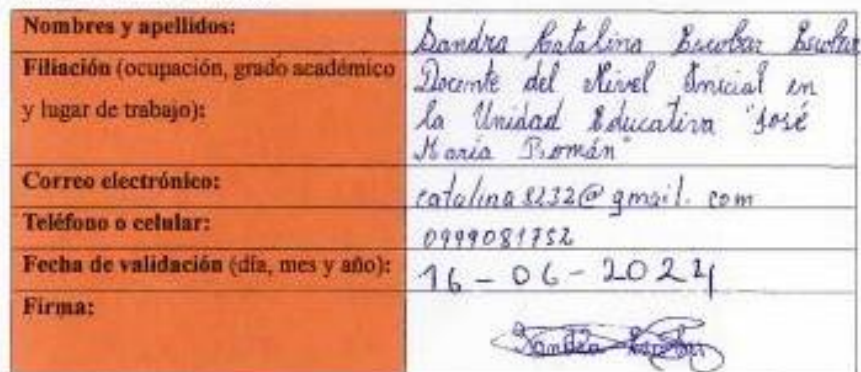 Nombres y apellidos:
Sandra Catalina Escobar Escobar
Filiación (ocupación, grado académico
y lugar de trabajo):
Docente del Nivel Inicial en
la Unidad Educativa "José
María Román"
Correo electrónico:
catalina8232@gmail.com
Teléfono o celular:
0999081752
Fecha de validación (día, mes y año):
16-06-2024
Firma:
Sandra Escobar